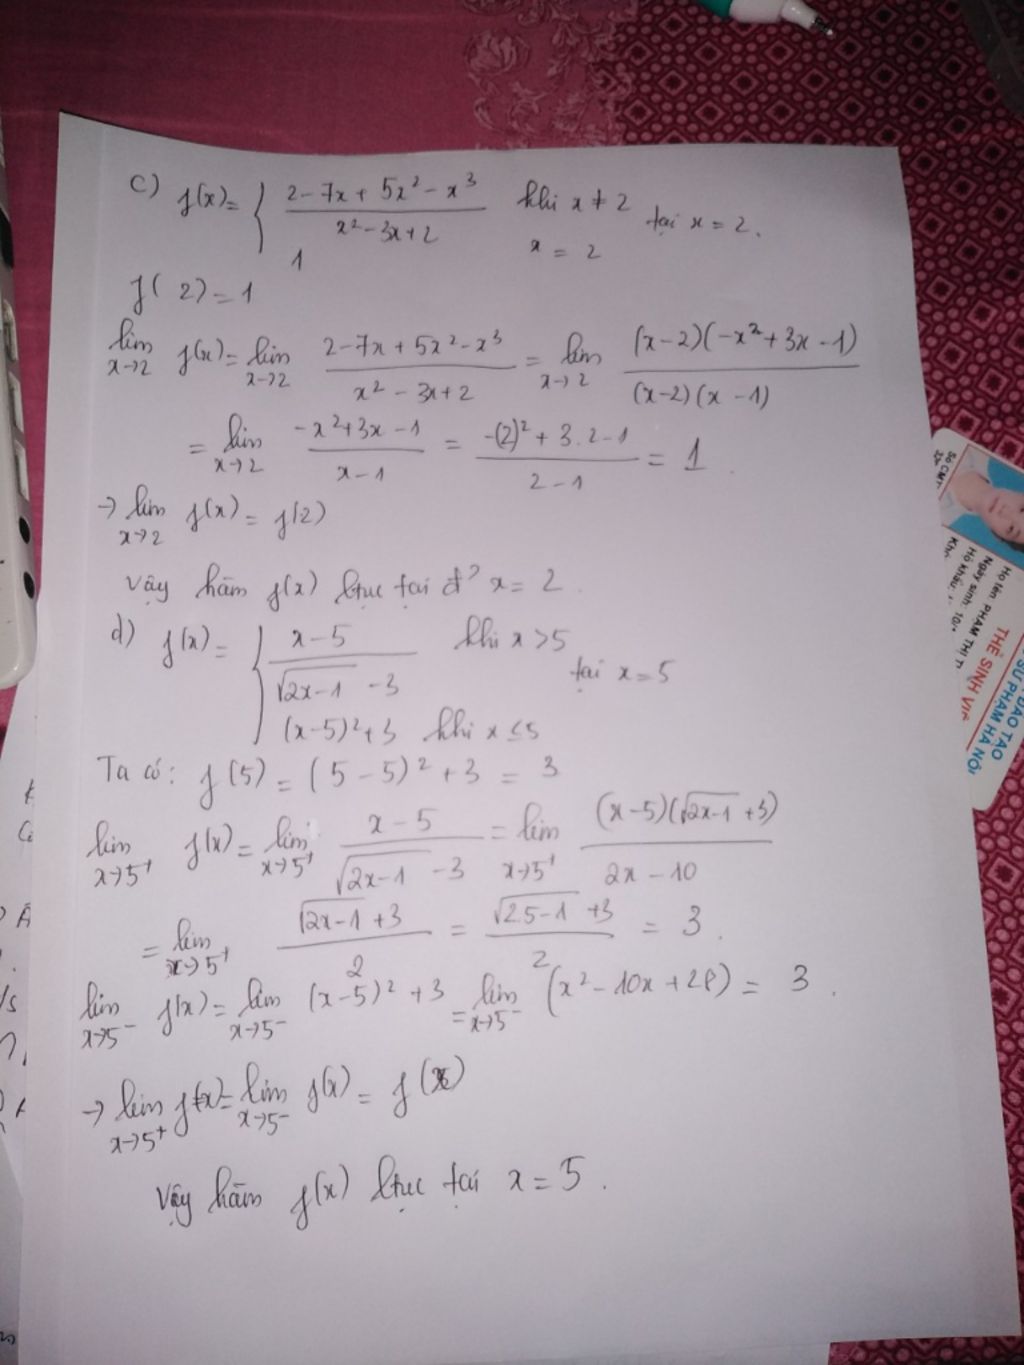 c) f(x) = { (2 - 7x + 5x² - x³)/(x² - 3x + 2) khi x ≠ 2 tại x = 2.
1 x = 2
f(2) = 1
lim x→2 f(x) = lim x→2 (2 - 7x + 5x² - x³)/(x² - 3x + 2) = lim x→2 ((x-2)(-x² + 3x - 1))/((x-2)(x-1))
= lim x→2 (-x² + 3x - 1)/(x - 1) = (-(2)² + 3.2 - 1)/(2 - 1) = 1.
→ lim x→2 f(x) = f(2)
Vậy hàm f(x) ltục tại đ² x = 2.
d) f(x) = { (x - 5)/(√(2x-1) - 3) khi x > 5 tại x = 5
(x-5)² + 3 khi x ≤ 5
Ta có: f(5) = (5 - 5)² + 3 = 3
lim x→5⁺ f(x) = lim x→5⁺ (x - 5)/(√(2x-1) - 3) = lim x→5⁺ ((x-5)(√(2x-1) + 3))/(2x - 10)
= lim x→5⁺ (√(2x-1) + 3)/2 = (√(2.5-1) + 3)/2 = 3.
lim x→5⁻ f(x) = lim x→5⁻ (x-5)² + 3 = lim x→5⁻ (x² - 10x + 28) = 3.
→ lim x→5⁺ f(x) = lim x→5⁻ f(x) = f(x)
Vậy hàm f(x) ltục tại x = 5.
ĐÀO TẠO
SƯ PHẠM HÀ NỘI
THẺ SINH VIÊ
Họ tên: PHẠM THỊ T
Ngày sinh: 10/
Hộ khẩu:
Số CMT